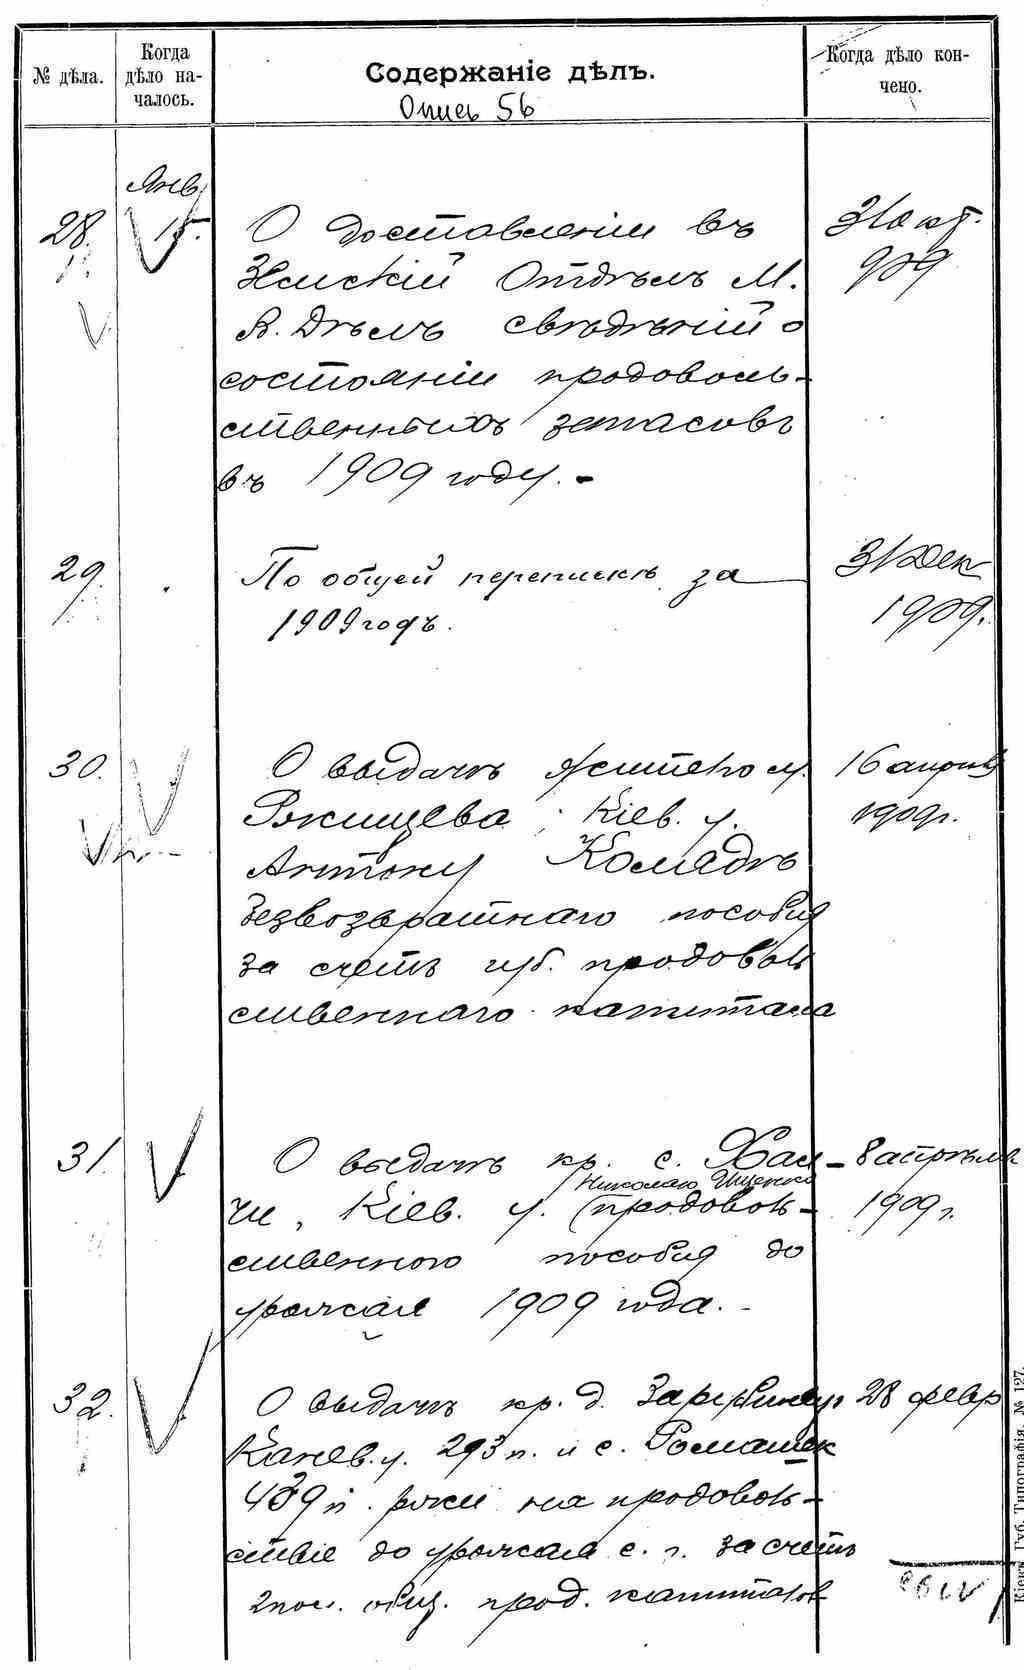 № дѣла.
Когда
дѣло на-
чалось.
Содержаніе дѣлъ.
Опись 56
Когда дѣло кон-
чено.
Янв.
28. 15. О доставленіи въ 31 окт.
Земскій Отдѣлъ М. 909
В. Дѣлъ свѣдѣній о
состояніи продоволь-
ственныхъ запасовъ
въ 1909 году. -
29. По общей перепискѣ за 31 Дек
1909 годъ. 1909.
30. О выдачѣ жителю м. 16 апрѣля
Ржищева Кіев. у. 1909 г.
Антону Комядѣ
безвозвратнаго пособія
за счетъ губ. продоволь
ственнаго капитала
31. О выдачѣ кр. с. Хал- 8 апрѣля
Николаю Ищенко
чи, Кіев. у. (продоволь- 1909 г.
ственного пособія до
урожая 1909 года. -
32. О выдачѣ кр. д. 28 февр
Канев. у. 293 п. и с. Ромашек
439 п. ржи на продоволь-
ствіе до урожая с. г. за счетъ
общ. прод. капиталов
Кіевъ, Губ. Типографія. № 127.